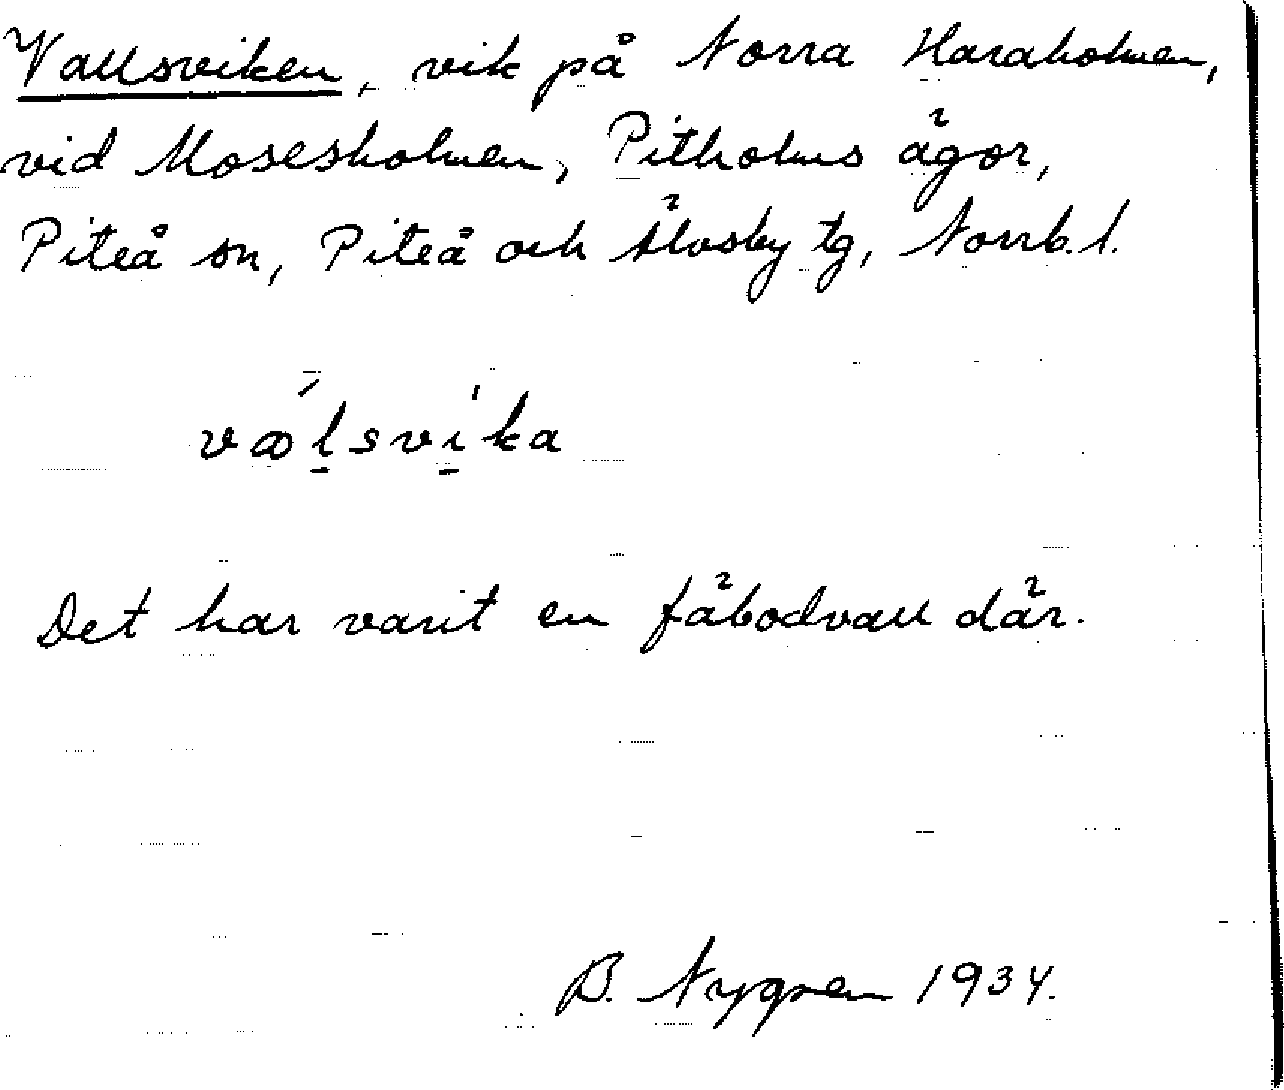 Vallsviken, vik på Norra Haraholmen,
vid Mosesholmen, Pitholms ägor,
Piteå sn, Piteå och Älvsby tg, Norrb. l.
væ´l̠svi̠ˈka
Det har varit en fäbodvall där.
B. Nygren 1934.